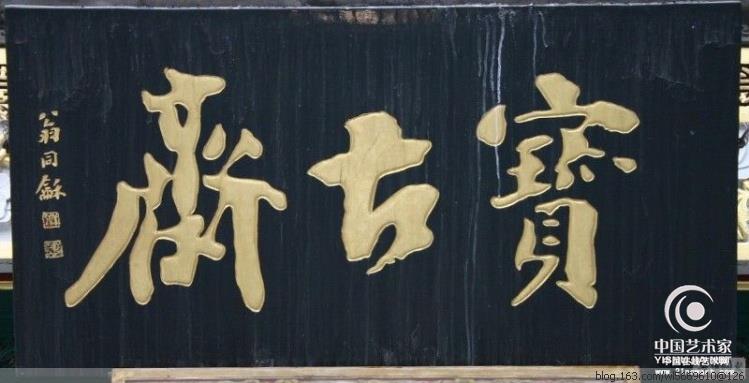 寶古齋
翁同龢
中国艺术家
blog.163.com/wl5669610@126